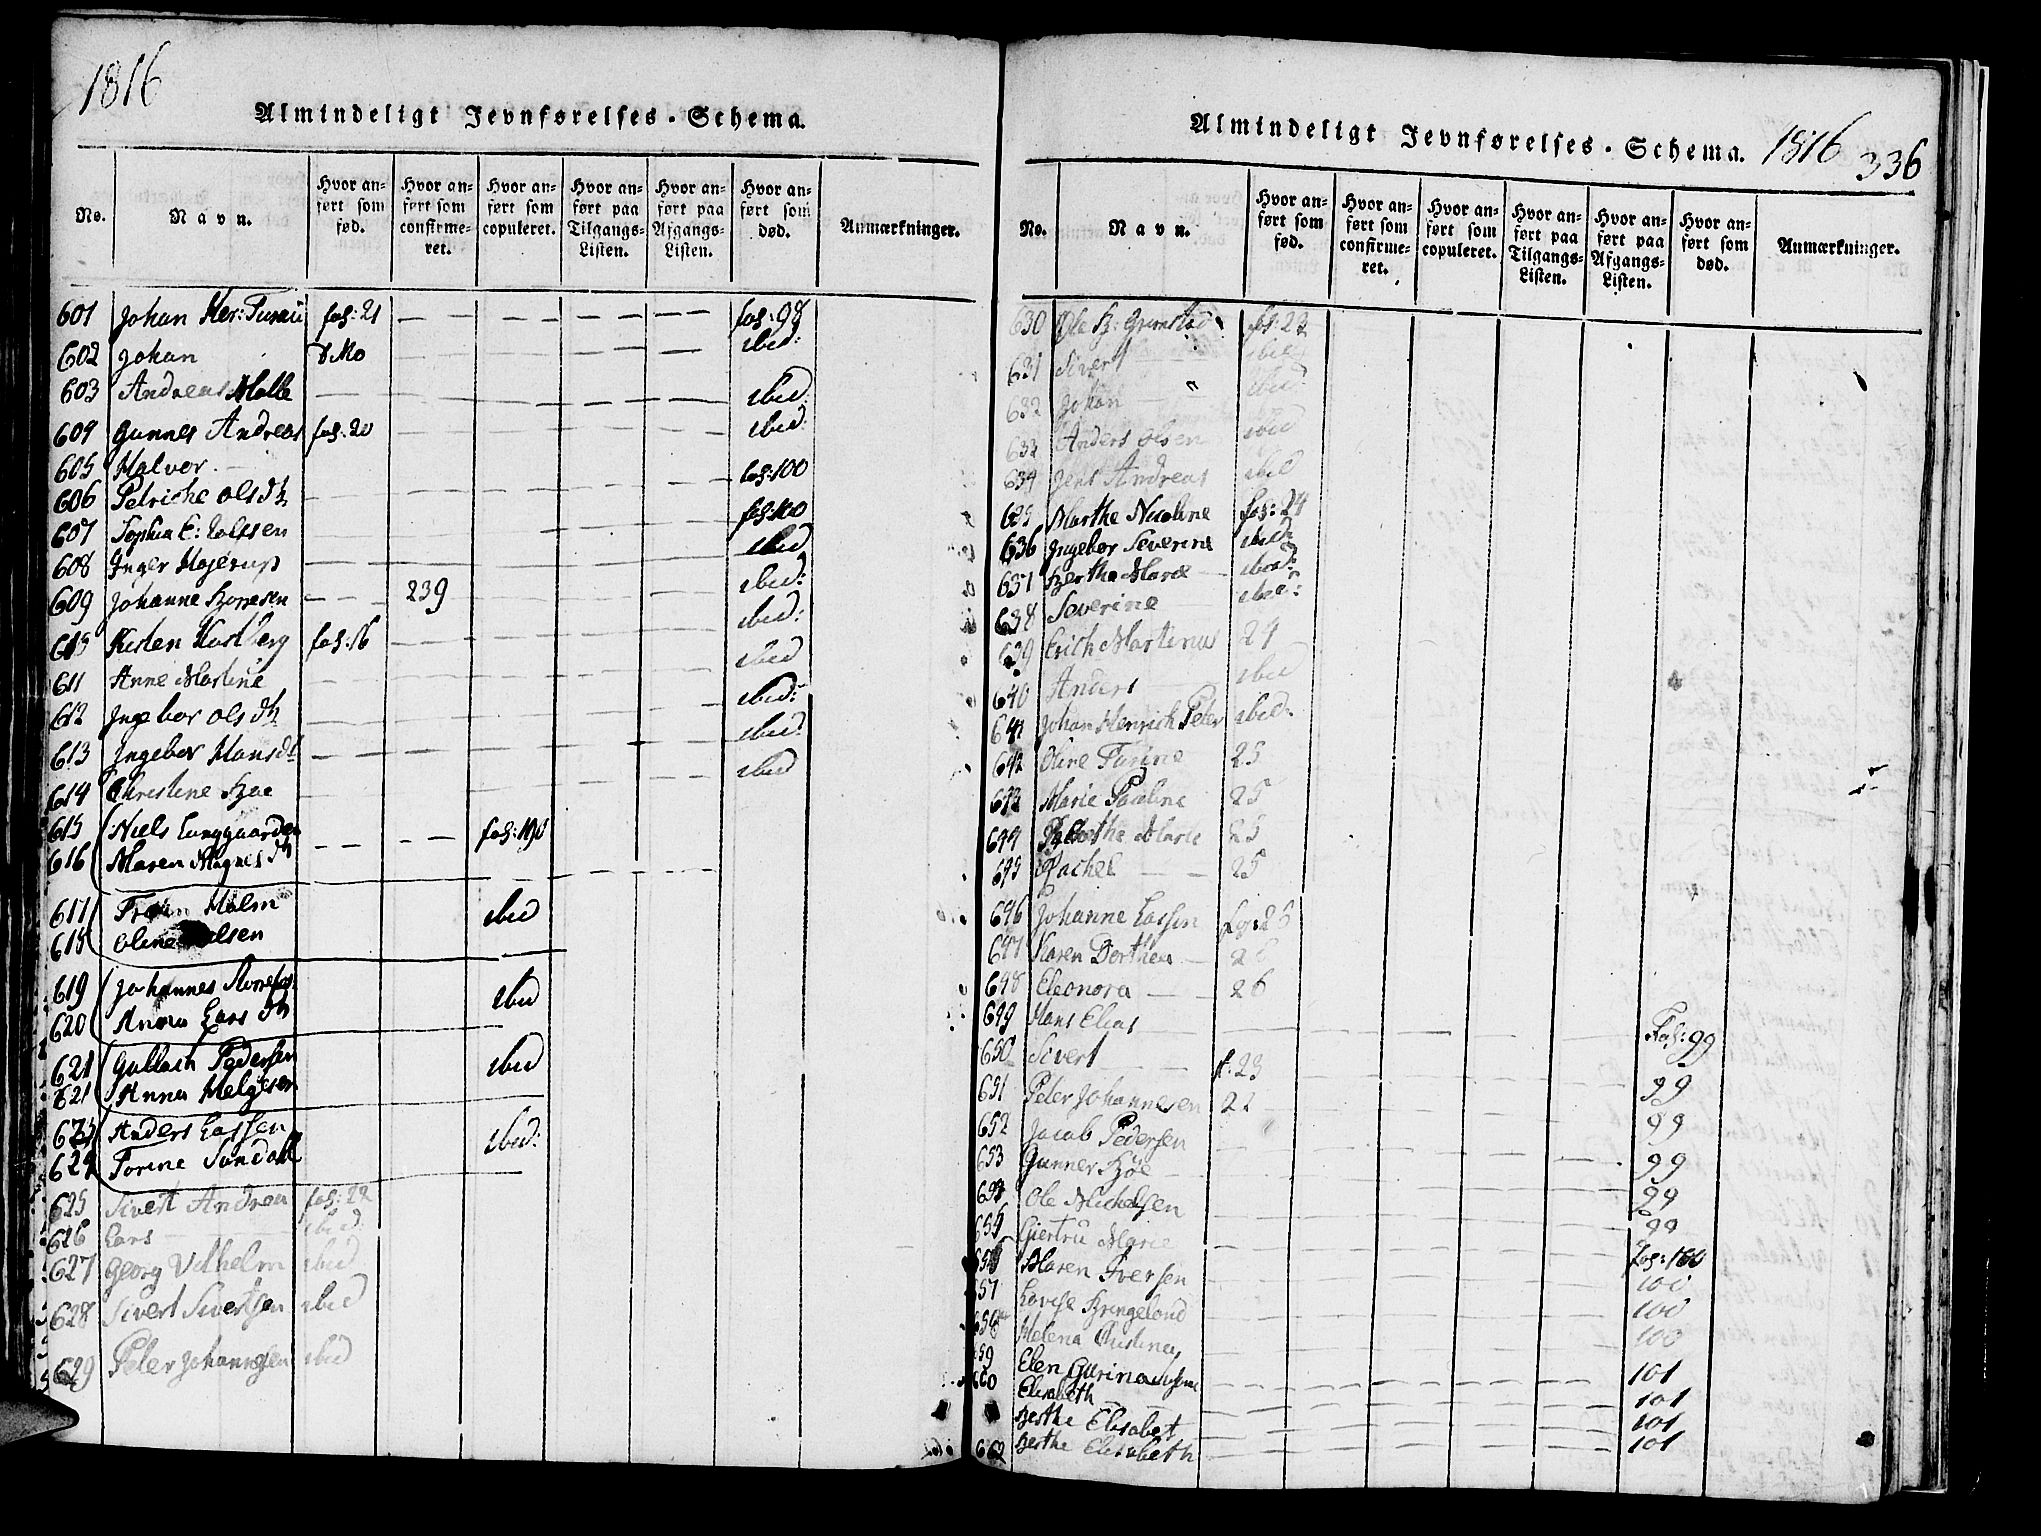 1816
Almindeligt Jevnførelses-Schema.
No. Navn. Hvor anført som fød. Hvor anført som confirmeret. Hvor anført som copuleret. Hvor anført paa Tilgangs-Listen. Hvor anført paa Afgangs-Listen. Hvor anført som død. Anmærkninger.
601 Johan fol: 21 — — — — fol: 98
602 Johan ibid:
603 Andreas Malle — — — — — ibid:
604 Gunner Andreas fol: 20 — — — — ibid:
605 Halver fol: 100
606 Petriche Olsdtr — — — — — fol: 100
607 Sophia E: ibid
608 Inger Højerup — — — — — ibid:
609 Johanne — 239 — — — ibid:
Kisten fol: 16 — — — — ibid
611 Anne Martine — — — — — ibid:
612 Ingebor Olsdtr — — — — — ibid:
613 Ingebor Hansdtr — — — — — ibid
614 Christine
615 Niels Lunggaarden — — fol: 190
616 Maren Magnesdtr
617 Holm ibid
618 Oline
619 Johannes ibid
620 Anna Larsdtr
621 Gullach Pedersen ibid
621 Anna Helgesen
623 Anders Lassen ibid:
624 Torine Sundall
625 Sivert Andrea fol: 22
626 Lars ibid:
627 Georg Vilhelm ibid
628 Sivert Sivertsen ibid
629 Peter Johannesen ibid
Almindeligt Jevnførelses-Schema. 1816 336
No. Navn. Hvor anført som fød. Hvor anført som confirmeret. Hvor anført som copuleret. Hvor anført paa Tilgangs-Listen. Hvor anført paa Afgangs-Listen. Hvor anført som død. Anmærkninger.
630 Ole B: Grimstad fol: 23
631 Sivert ibid
632 Johan ibid
633 Anders Olsen ibid
634 Jens Andreas ibid
635 Marthe Nicoline fol: 24
636 Ingebor Severine ibid:
637 Berthe Marie ibid:
638 Severine ibid:
639 Erich Martinus 24
640 Anders ibid
641 Johan Henrich Peter ibid:
642 Oline Turine 25
643 Marie Pauline 25
644 Marie 25
645 Rachel 25
646 Johanne Lassen fol: 26
647 Karen Dorthea 26
648 Eleonora 26
649 Hans Elias — — — — — Fol: 99
650 Sivert f: 23 99
651 Peter Johannesen 22 99
652 Jacob Pedersen 99
653 Gunner Bøe 99
654 Ole Michelsen 99
655 Giertru Marie fol: 100
656 Maren Iversen 100
657 Lovise Bringeland 100
658 Helena 100
659 Elen Gurina 101
660 Elisabeth 101
Berthe Elisabet 101
662 Berthe Elisabeth 101